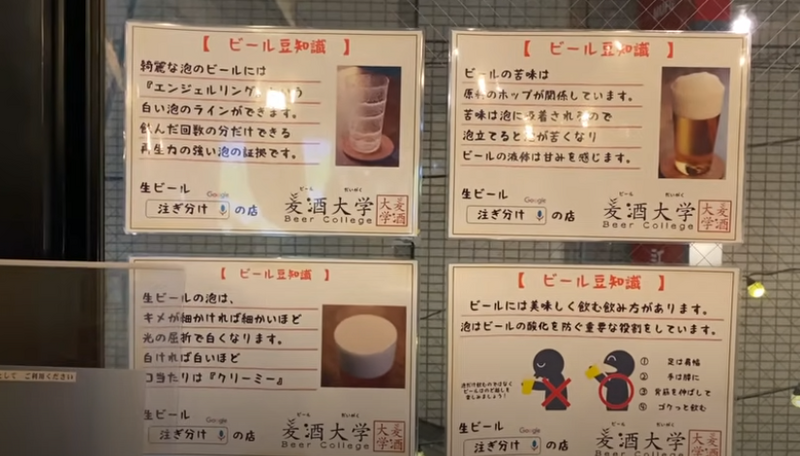 【 ビール豆知識 】
綺麗な泡のビールには
『エンジェルリング』という
白い泡のラインができます。
飲んだ回数の分だけできる
再生力の強い泡の証拠です。
生ビール
Google
注ぎ分け の店
ビール だいがく
麦酒大学
Beer College
麦酒
大学
【 ビール豆知識 】
ビールの苦味は
原料のホップが関係しています。
苦味は泡に吸着されるので
泡立てると泡が苦くなり
ビールの液体は甘みを感じます。
生ビール
Google
注ぎ分け の店
ビール だいがく
麦酒大学
Beer College
麦酒
大学
【 ビール豆知識 】
生ビールの泡は、
キメが細かければ細かいほど
光の屈折で白くなります。
白ければ白いほど
口当たりは『クリーミー』
生ビール
Google
注ぎ分け の店
ビール だいがく
麦酒大学
Beer College
麦酒
大学
【 ビール豆知識 】
ビールには美味しく飲む飲み方があります。
泡はビールの酸化を防ぐ重要な役割をしています。
① 足は肩幅
② 手は腰に
③ 背筋を伸ばして
④ ゴクっと飲む
生ビール
Google
注ぎ分け の店
ビール だいがく
麦酒大学
Beer College
麦酒
大学
して ご利用ください